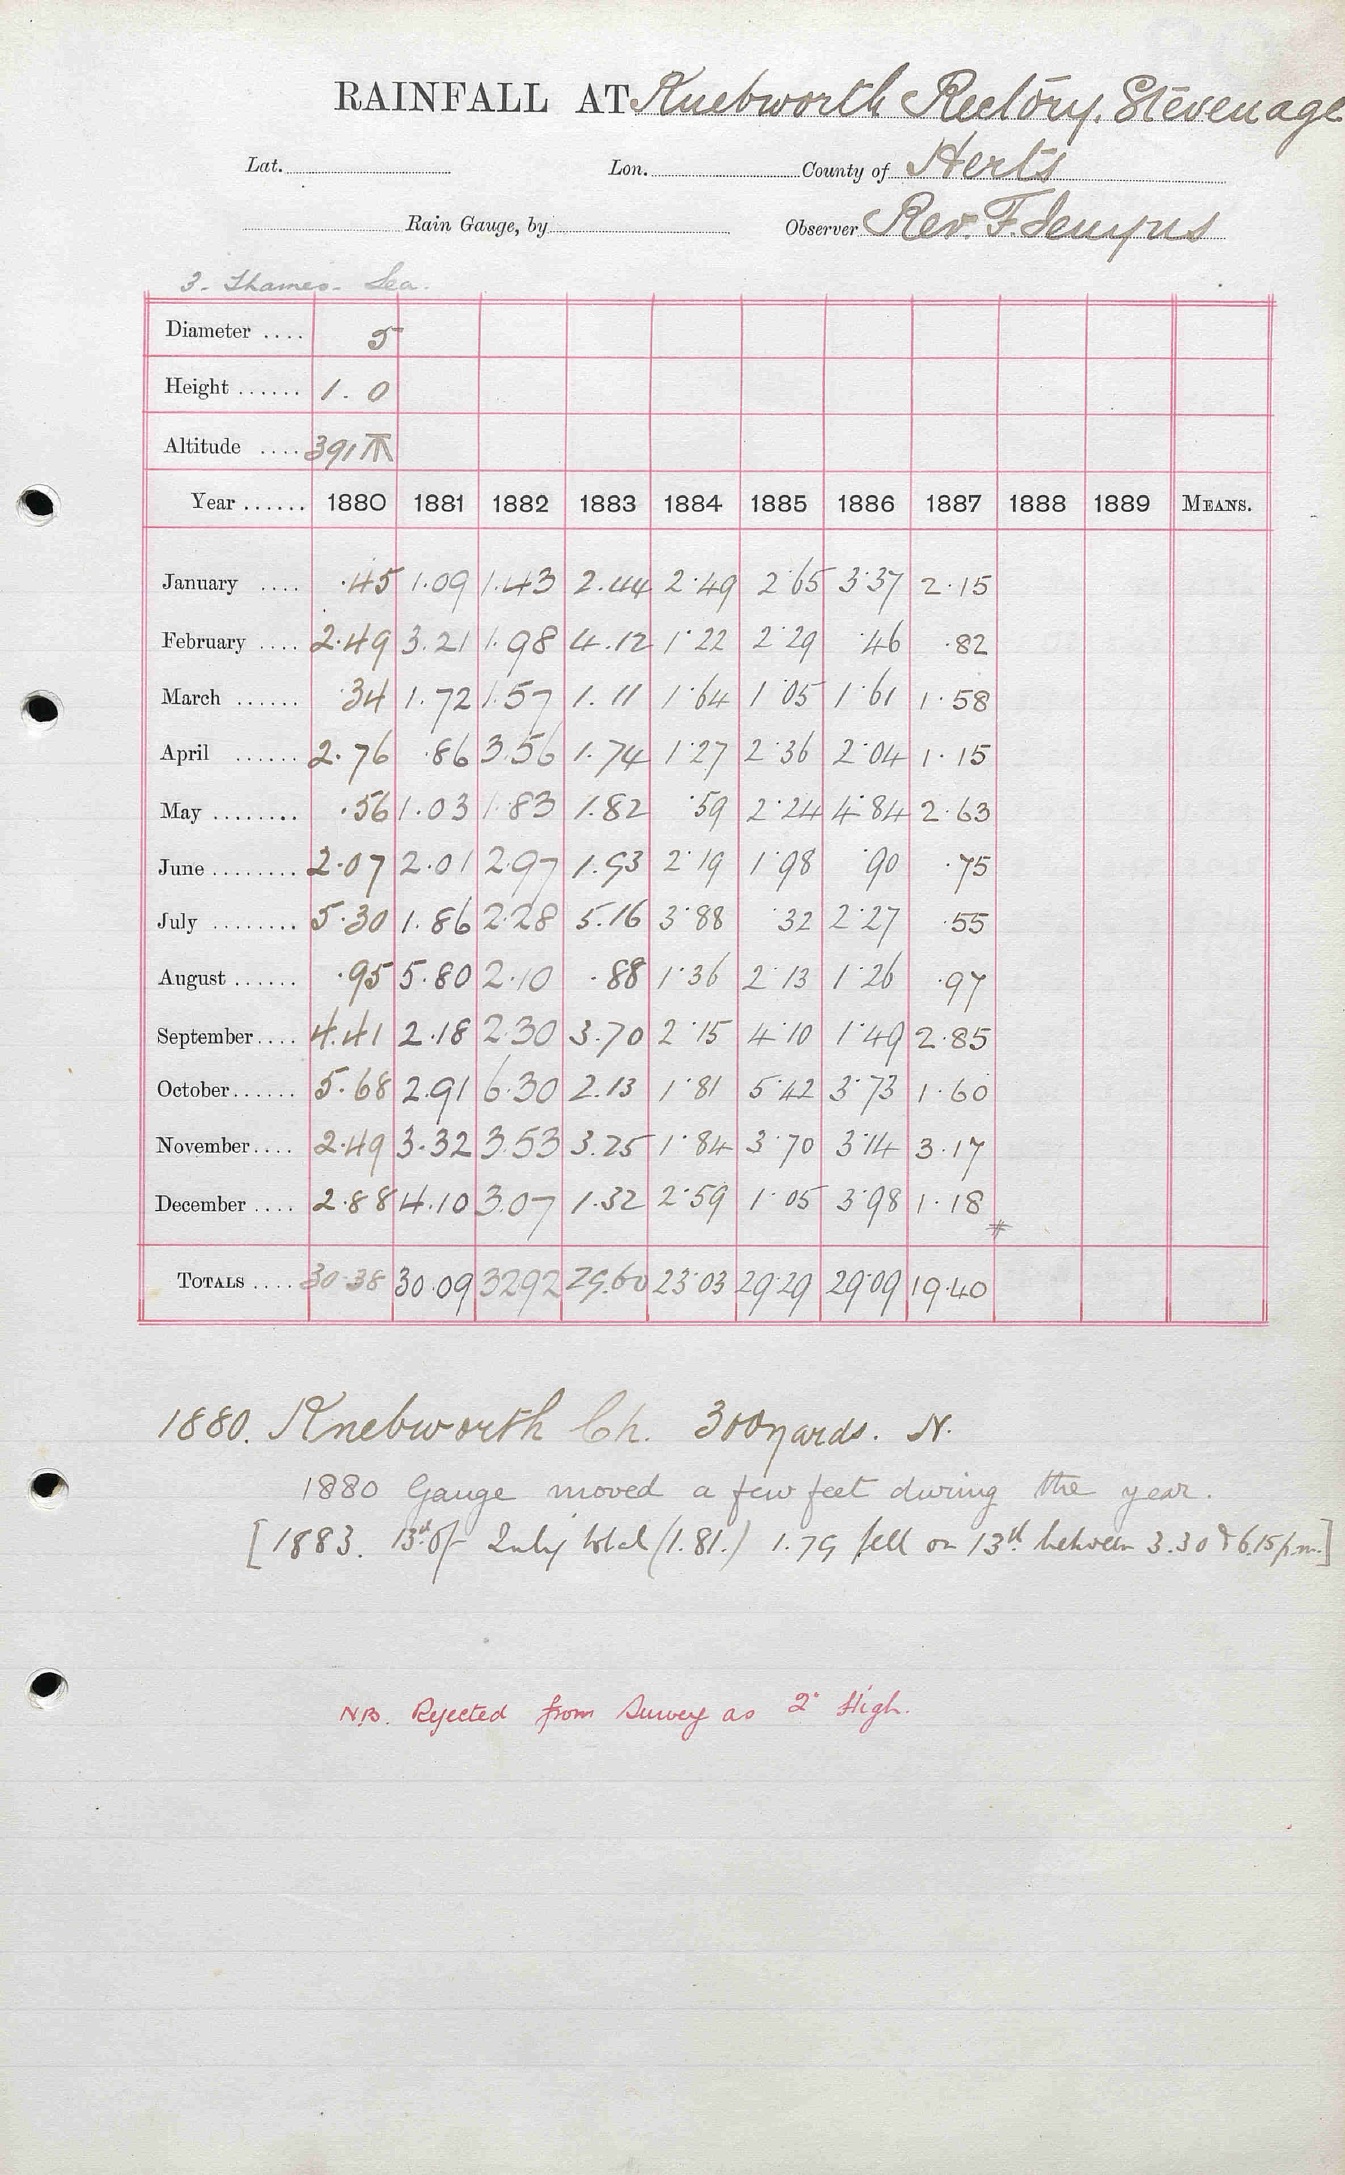 RAINFALL AT Knebworth Rectory, Stevenage
Lat. Lon. County of Herts
Rain Gauge, by Observer Rev. F.
3. Thames. Lea.
Diameter .... 5
Height ...... 1. 0
Altitude .... 391
Year ...... 1880 1881 1882 1883 1884 1885 1886 1887 1888 1889 MEANS.
January .... .45 1.09 1.43 2.44 2.49 2.65 3.37 2.15
February .... 2.49 3.21 1.98 4.12 1.22 2.29 .46 .82
March ...... .34 1.72 1.57 1.11 1.64 1.05 1.61 1.58
April ...... 2.76 .86 3.56 1.74 1.27 2.36 2.04 1.15
May ........ .56 1.03 1.83 1.82 .59 2.24 4.84 2.63
June ........ 2.07 2.01 2.97 1.93 2.19 1.98 .90 .75
July ........ 5.30 1.86 2.28 5.16 3.88 .32 2.27 .55
August ...... .95 5.80 2.10 .88 1.36 2.13 1.26 .97
September .... 4.41 2.18 2.30 3.70 2.15 4.10 1.49 2.85
October ...... 5.68 2.91 6.30 2.13 1.81 5.42 3.73 1.60
November .... 2.49 3.32 3.53 3.25 1.84 3.70 3.14 3.17
December .... 2.88 4.10 3.07 1.32 2.59 1.05 3.98 1.18 #
TOTALS .... 30.38 30.09 32.92 29.60 23.03 29.29 29.09 19.40
1880. Knebworth Ch. 300 yards. N.
1880 Gauge moved a few feet during the year.
[1883. 13th of July total (1.81.) 1.79 fell on 13th between 3.30 & 6.15 p.m.]
N.B. Rejected from Survey as 2" High.